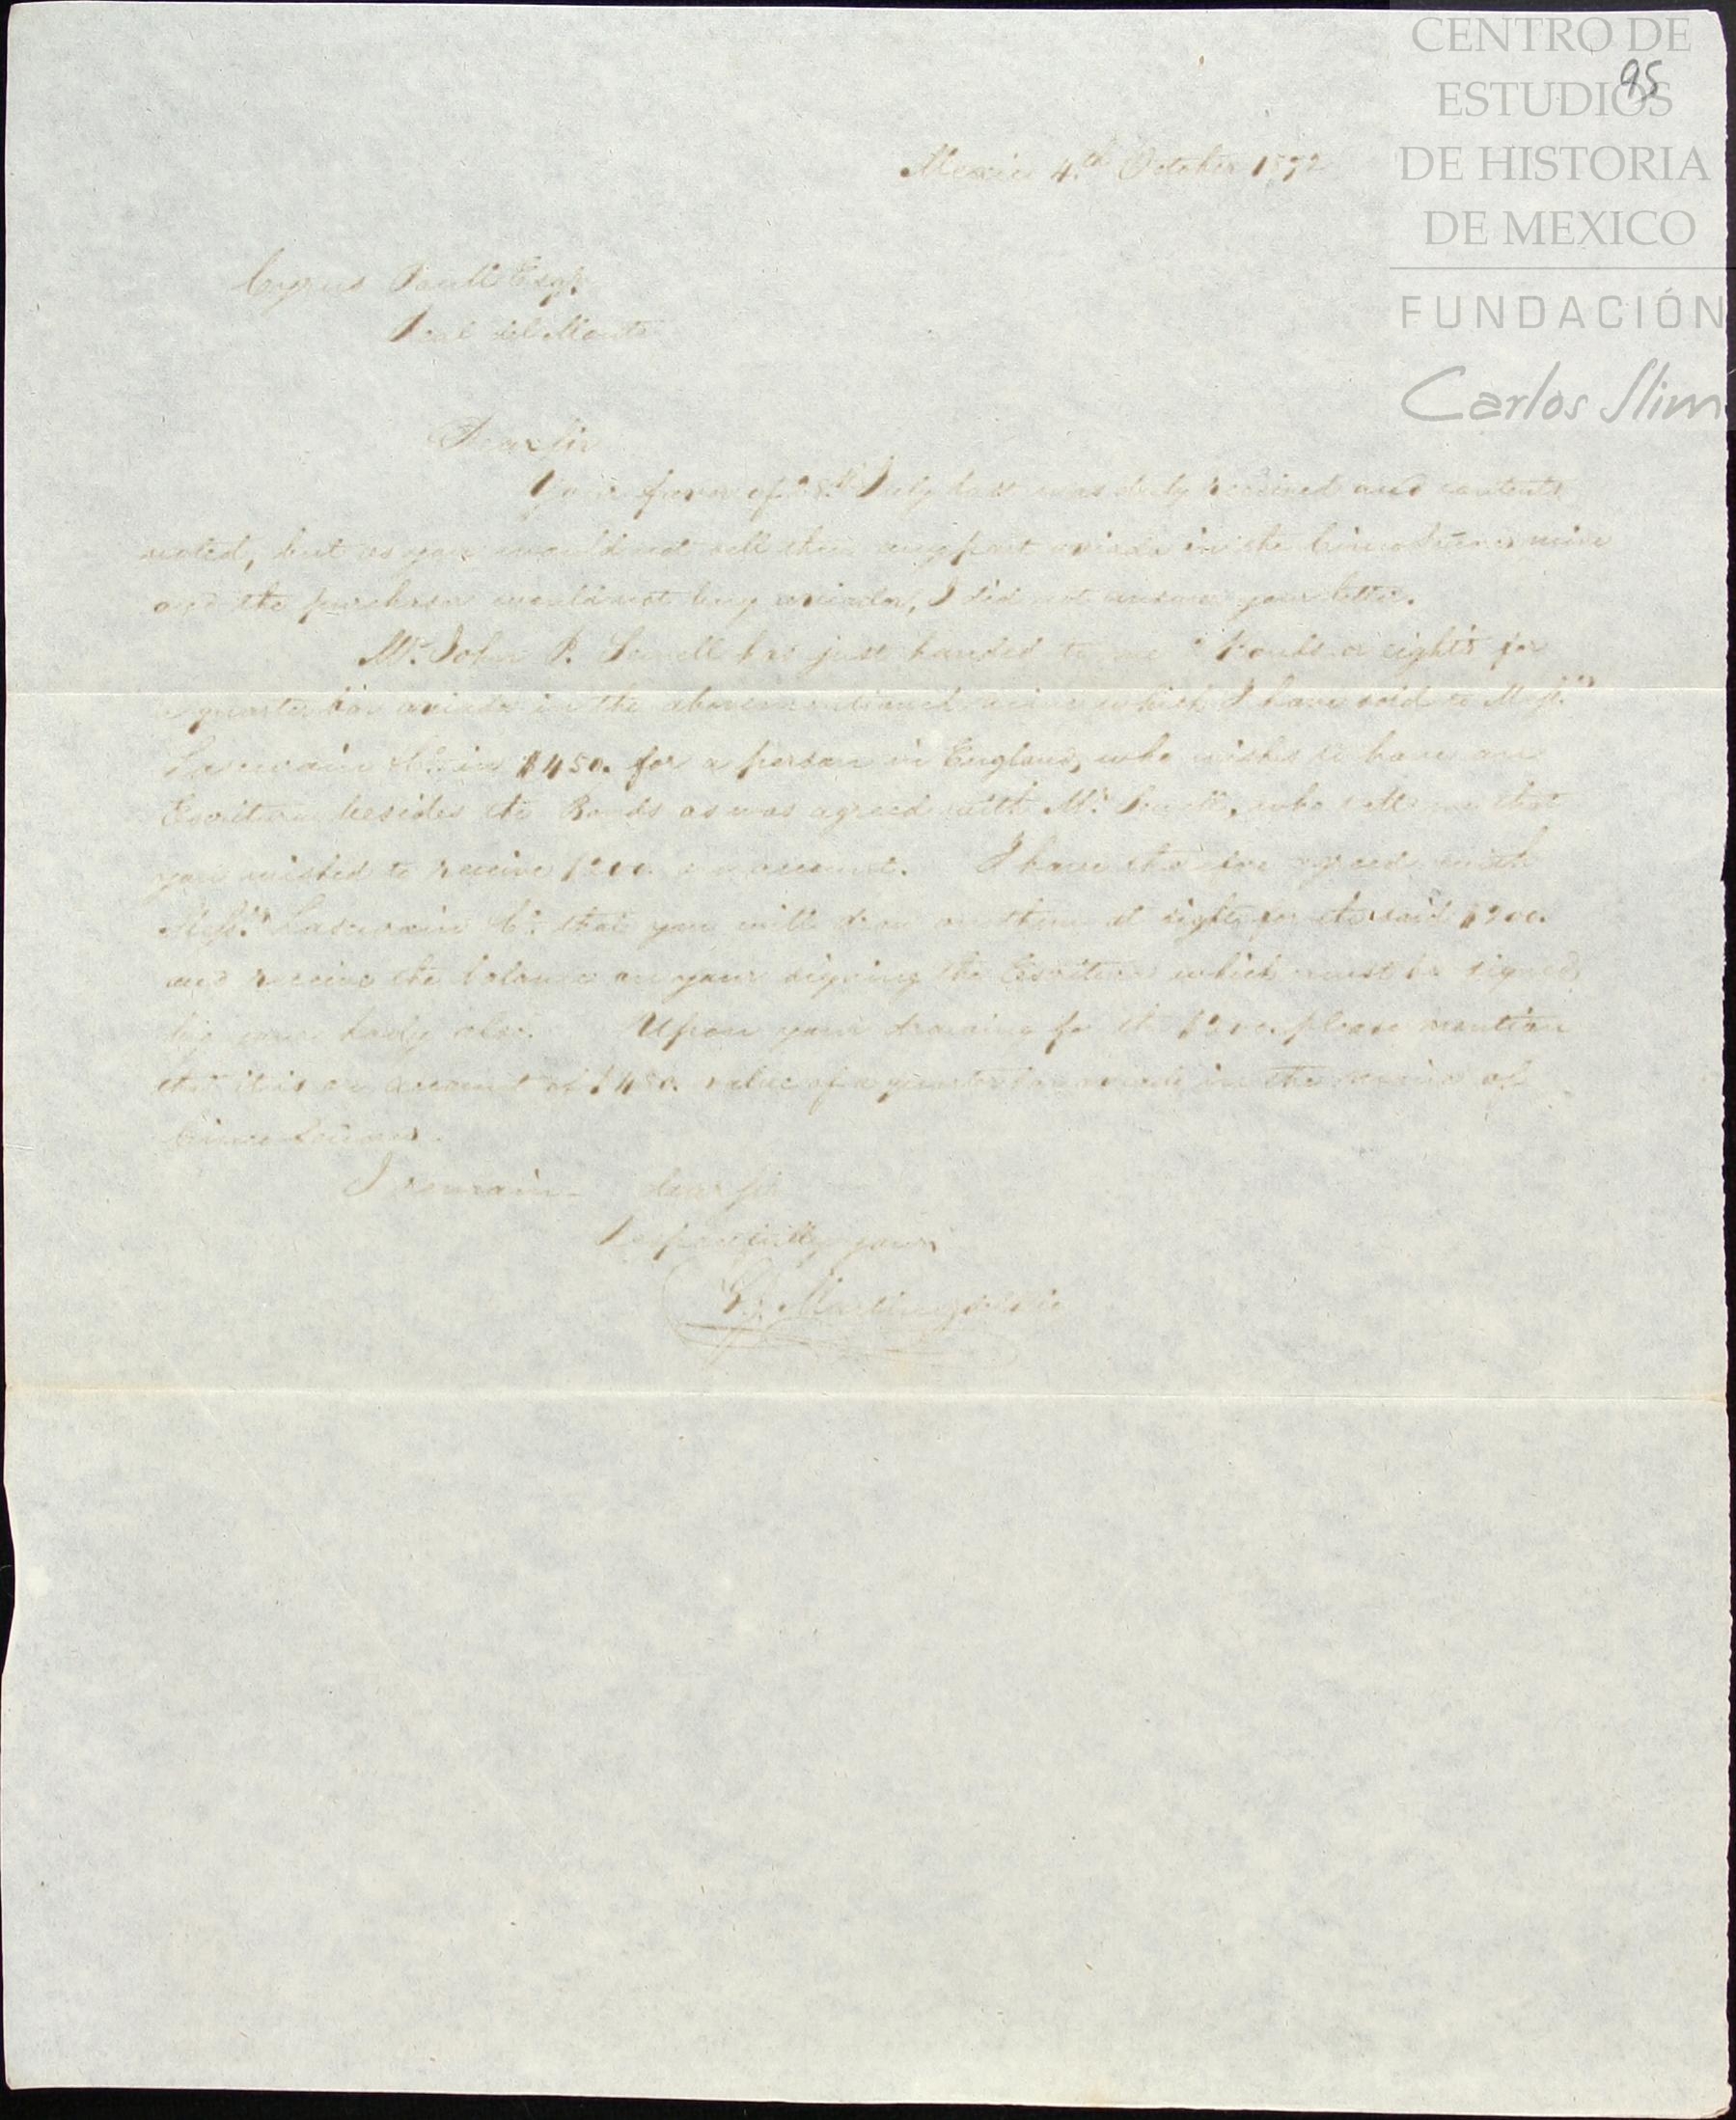 CENTRO DE
ESTUDIOS
DE HISTORIA
DE MEXICO
FUNDACIÓN
Carlos Slim
95
Mexico 4th October 1872
Cyrus Esqr
Real del Monte
Dear Sir
Your favor of 28th July last was duly received and contents
noted, but as you would not sell then any part aviada in the Cinco Señores mine
and the purchaser would not buy aviador, I did not answer your letter.
Mr. John P. has just handed to me Bonds or rights for
a quarter bar aviada in the abovementioned mine which I have sold to Messrs
Co. in $450. for a person in England, who wishes to have an
Escritura besides the Bonds as was agreed with Mr. who tells me that
you wished to receive $200. on account. I have therefore agreed with
Messrs Co. that you will draw on them at sight for the said $200.
and receive the balance on your signing the Escritura which must be signed
by your lady also. Upon your drawing for the $200. please mention
that it is on account of $450. value of a quarter bar aviada in the mine of
Cinco Señores.
I remain dear Sir
Respectfully yours